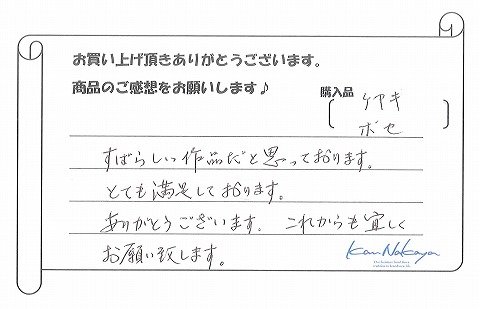 お買い上げ頂きありがとうございます。
商品のご感想をお願いします♪
購入品
ケヤキ
ボセ
すばらしい作品だと思っております。
とても満足しております。
ありがとうございます。これからも宜しく
お願い致します。
Kan Nakaya